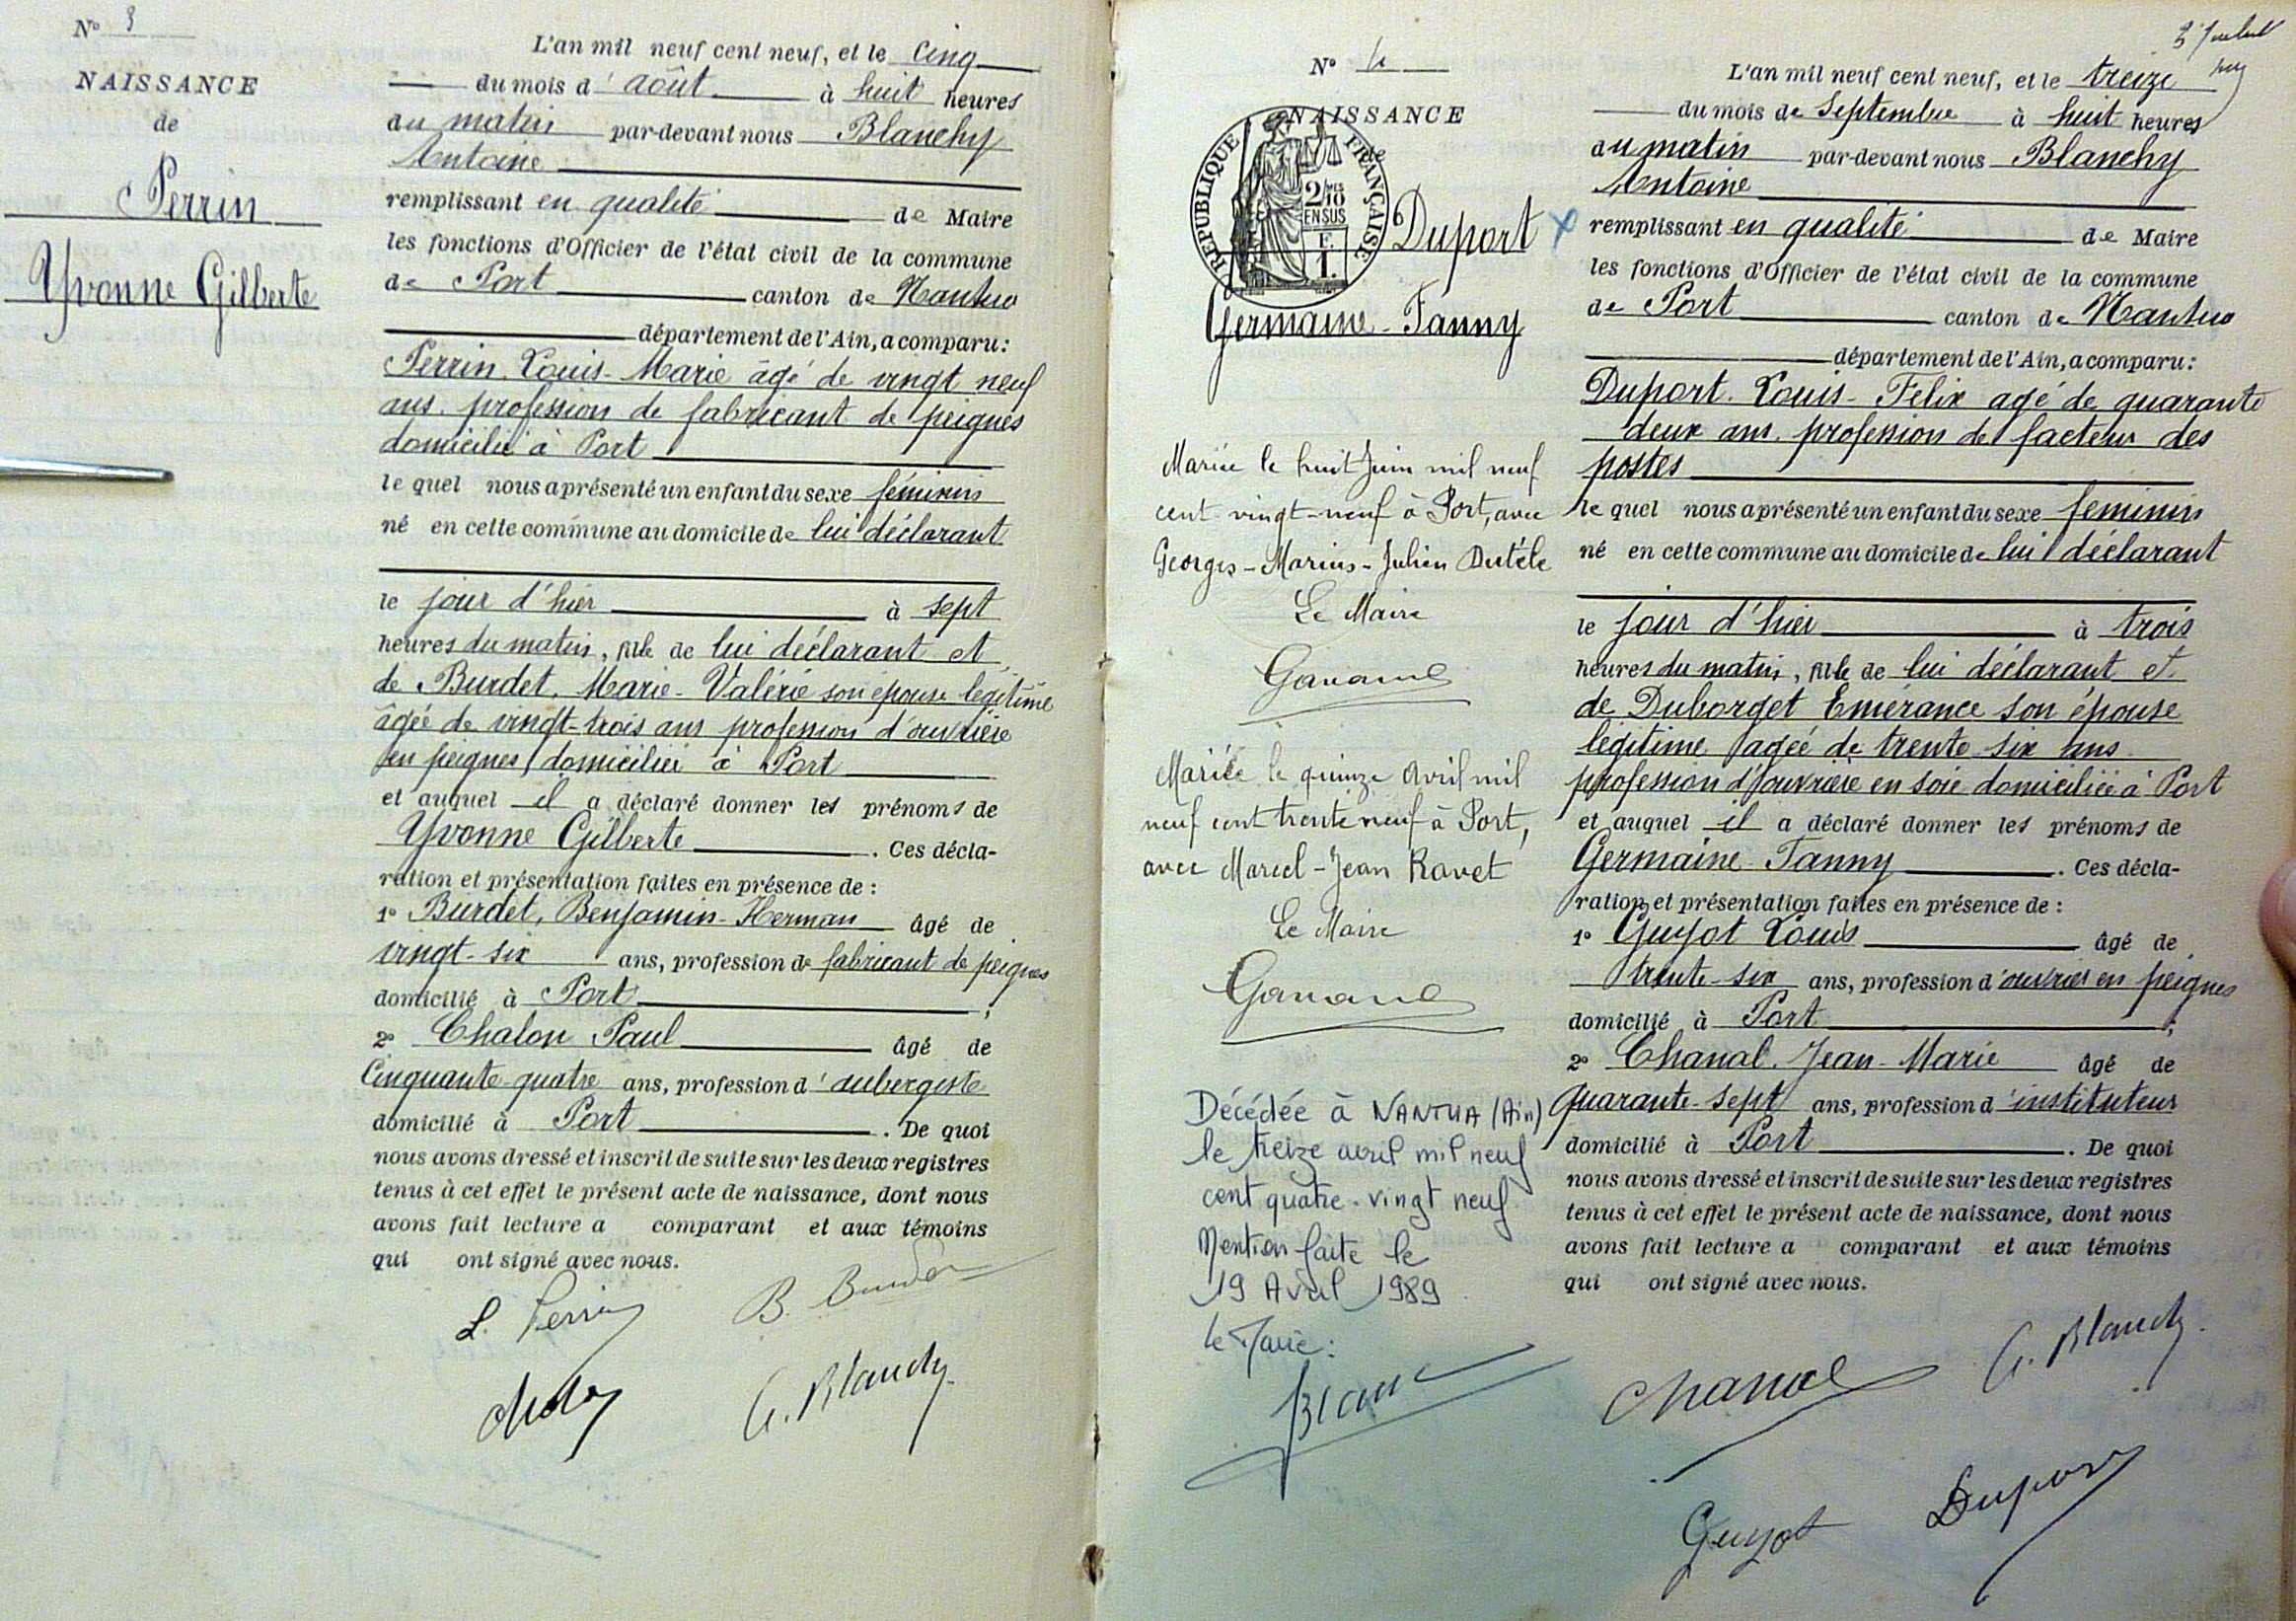 N° 3
NAISSANCE
de
Perrin
Yvonne Gilberte
L'an mil neuf cent neuf, et le cinq
du mois d'août à huit heures
du matin par-devant nous Blanchy
Antoine
remplissant en qualité de Maire
les fonctions d'Officier de l'état civil de la commune
de Port canton de Nantua
département de l'Ain, a comparu:
Perrin Louis-Marie âgé de vingt neuf
ans. profession de fabricant de peignes
domicilié à Port
le quel nous a présenté un enfant du sexe féminin
né en cette commune au domicile de lui déclarant
le jour d'hier à sept
heures du matin, fille de lui déclarant et
de Burdet. Marie-Valérie son épouse légitime
âgée de vingt-trois ans profession d'ouvrière
en peignes domiciliée à Port
et auquel il a déclaré donner les prénoms de
Yvonne Gilberte . Ces décla-
ration et présentation faites en présence de :
1° Burdet, Benjamin-Herman âgé de
vingt-six ans, profession de fabricant de peignes
domicilié à Port ;
2° Chalon Paul âgé de
Cinquante-quatre ans, profession d'aubergiste
domicilié à Port . De quoi
nous avons dressé et inscrit de suite sur les deux registres
tenus à cet effet le présent acte de naissance, dont nous
avons fait lecture a comparant et aux témoins
qui ont signé avec nous.
L. Perrin B. Burdet
A. Blanchy
N° 4
NAISSANCE
de
RÉPUBLIQUE FRANÇAISE
2/10
EN SUS
Duport
Germaine-Fanny
Mariée le huit Juin mil neuf
cent vingt-neuf à Port, avec
Georges-Marius-Julien Dutèle
Le Maire
Mariée le quinze avril mil
neuf cent trente neuf à Port,
avec Marcel-Jean Ravet
Le Maire
Décédée à NANTUA (Ain)
le treize avril mil neuf
cent quatre-vingt neuf
Mention faite le
19 Avril 1989
le Maire :
L'an mil neuf cent neuf, et le treize
du mois de Septembre à huit heures
du matin par-devant nous Blanchy
Antoine
remplissant en qualité de Maire
les fonctions d'Officier de l'état civil de la commune
de Port canton de Nantua
département de l'Ain, a comparu:
Duport. Louis-Felix agé de quarante
deux ans. profession de facteur des
postes
le quel nous a présenté un enfant du sexe feminin
né en cette commune au domicile de lui déclarant
le jour d'hier à trois
heures du matin, fille de lui déclarant et
de Duborget Emérance son épouse
légitime agée de trente six ans
profession d'ouvrière en soie domiciliée à Port
et auquel il a déclaré donner les prénoms de
Germaine-Fanny . Ces décla-
ration et présentation faites en présence de :
1° Guyot Louis âgé de
trente-six ans, profession d'ouvrier en peignes
domicilié à Port ;
2° Chanal. Jean-Marie âgé de
quarante-sept ans, profession d'instituteur
domicilié à Port . De quoi
nous avons dressé et inscrit de suite sur les deux registres
tenus à cet effet le présent acte de naissance, dont nous
avons fait lecture a comparant et aux témoins
qui ont signé avec nous.
Chanal A. Blanchy
Guyot Duport